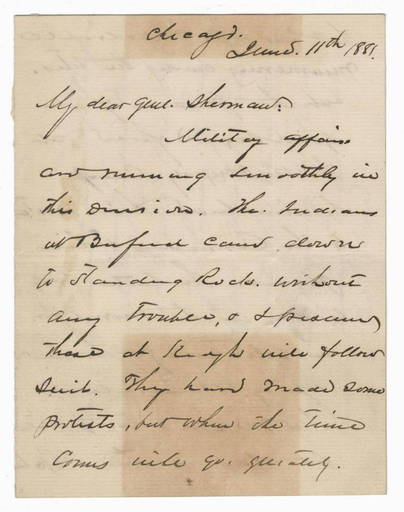 Chicago.
June. 11th 1881.
My dear Genl. Sherman:
Military affairs
are running smoothly in
this Division. The Indians
at Buford came down
to Standing Rock. without
any trouble, & I presume
those at Keogh will follow
suit. They have made some
protests, but when the time
comes will go quietly.